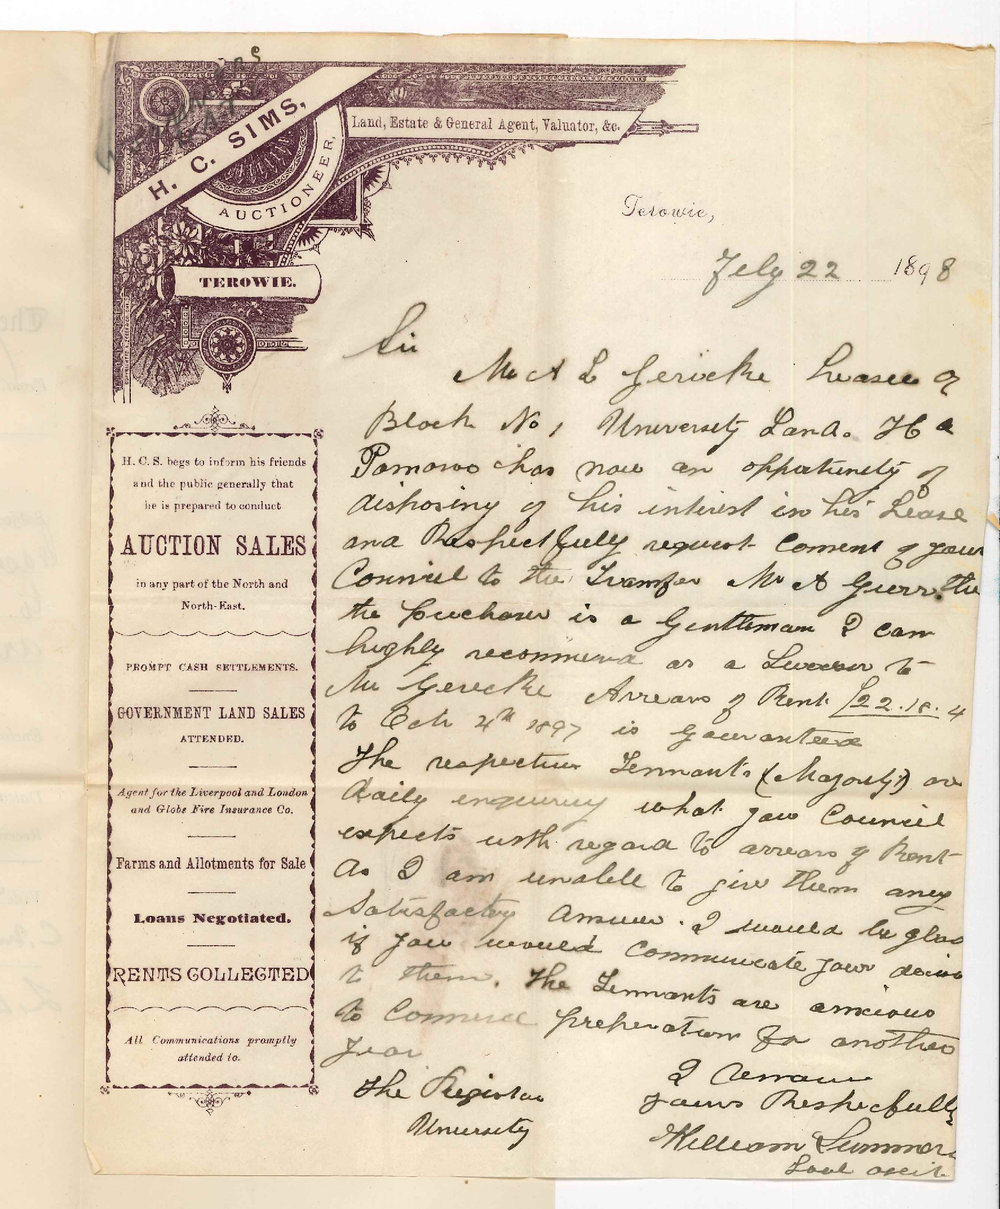 H. C. SIMS,
AUCTIONEER,
Land, Estate & General Agent, Valuator, &c.
TEROWIE.
Terowie,
Feby 22 1898
Sir
Mr A L Gericke Leasee of
Block No 1 University Land. Hd
Pomaroo has now an oppertunity of
disposing of his intirest in his Lease
and Respectfully request Consent of your
Council to the Transfer Mr A Guerr
the purchaser is a Gentleman I can
highly recommend as a Successor to
Mr Gericke Arrears of Rent £22.18.4
to Oct 4th 1897 is guaranteed
The respective Tennants (Majority) are
daily enquiring what your Council
expects with regard to arrears of Rent
As I am unable to give them any
Satisfactory answer. I would be glad
if you would communicate your decision
to them. The Tennants are anxious
to Commence preperation for another
year
I remain
Yours Respectfully
William Summers
Local
The Registrar
University
H. C. S. begs to inform his friends
and the public generally that
he is prepared to conduct
AUCTION SALES
in any part of the North and
North-East.
PROMPT CASH SETTLEMENTS.
GOVERNMENT LAND SALES
ATTENDED.
Agent for the Liverpool and London
and Globe Fire Insurance Co.
Farms and Allotments for Sale
Loans Negotiated.
RENTS COLLECTED
All Communications promptly
attended to.